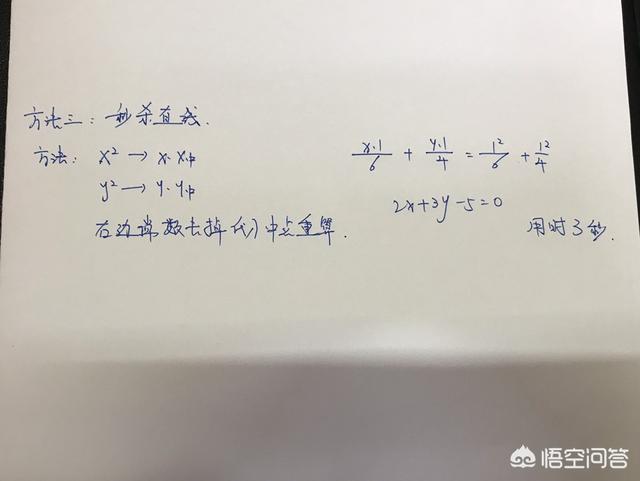 方法三：秒杀直线.
方法： x² → x·x中
y² → y·y中
右边常数去掉代入中点重算.
x·1/6 + y·1/4 = 1²/6 + 1²/4
2x+3y-5=0
用时3秒.
悟空问答